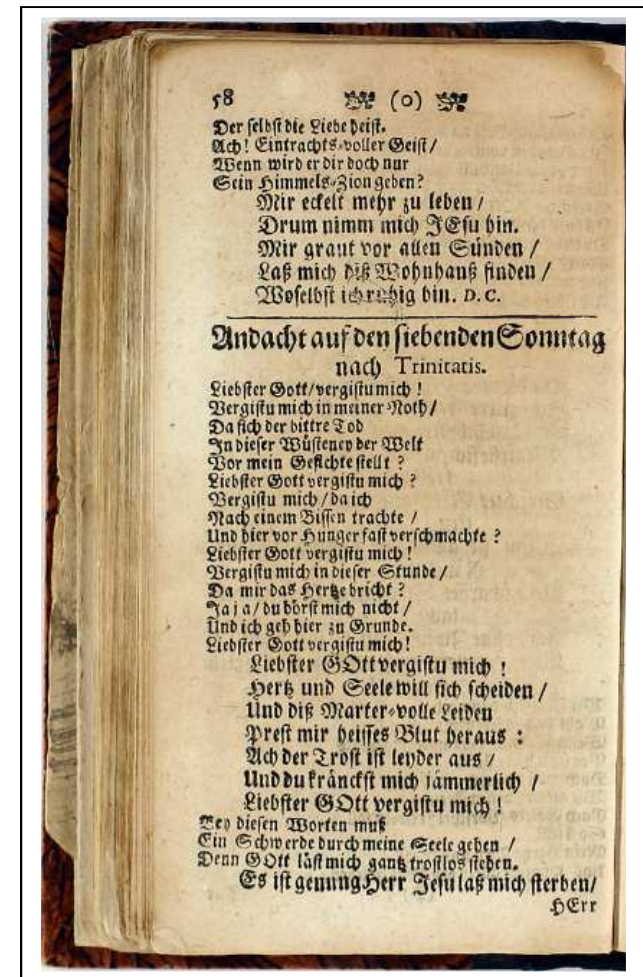 58 (0)
Der selbst die Liebe heist.
Ach! Eintrachts-voller Geist /
Wenn wird er dir doch nur
Sein Himmels-Zion geben?
Mir eckelt mehr zu leben /
Drum nimm mich JEsu hin.
Mir graut vor allen Sünden /
Laß mich diß Wohnhauß finden /
Woselbst ich ruhig bin. D. C.
Andacht auf den siebenden Sonntag
nach Trinitatis.
Liebster Gott/vergistu mich !
Vergistu mich in meiner Noth /
Da sich der bittre Tod
In dieser Wüsteney der Welt
Vor mein Gesichte stellt ?
Liebster Gott vergistu mich ?
Vergistu mich / da ich
Nach einem Bissen trachte /
Und hier vor Hunger fast verschmachte ?
Liebster Gott vergistu mich !
Vergistu mich in dieser Stunde /
Da mir das Hertze bricht ?
Ja ja / du hörst mich nicht /
Und ich geh hier zu Grunde.
Liebster Gott vergistu mich!
Liebster GOtt vergistu mich !
Hertz und Seele will sich scheiden /
Und diß Marter-volle Leiden
Prest mir heisses Blut heraus :
Ach der Trost ist leyder aus /
Und du kränckst mich jämmerlich /
Liebster GOtt vergistu mich !
Bey diesen Worten muß
Ein Schwerde durch meine Seele gehen /
Denn GOtt läst mich gantz trostlos stehen.
Es ist genung Herr Jesu laß mich sterben/
HErr